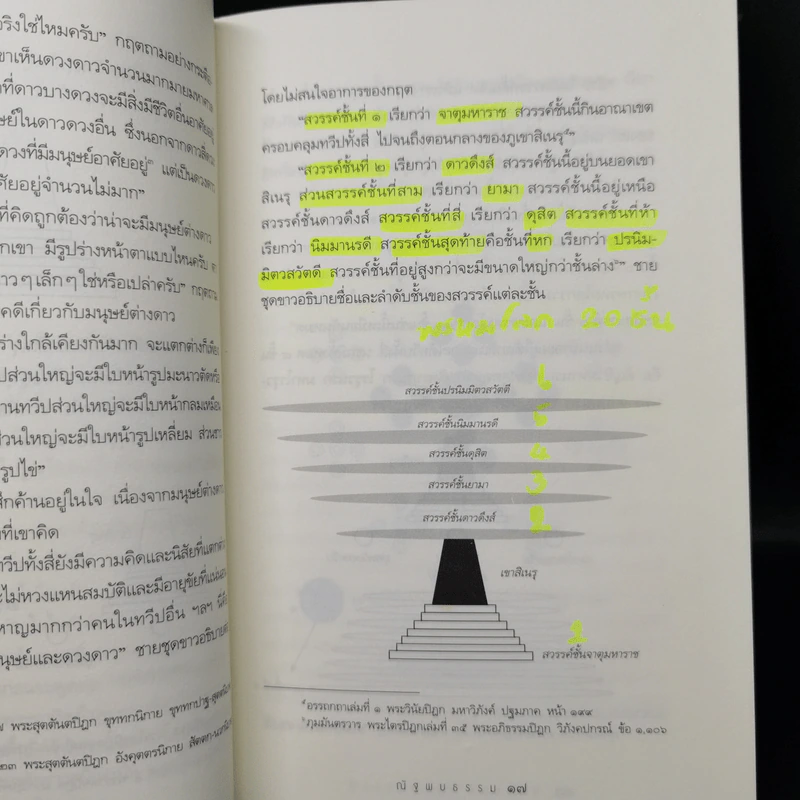 จริงใช่ไหมครับ” กฤตถามอย่างกระตือ
เขาเห็นดวงดาวจำนวนมากมายมหาศาล
ที่ดาวบางดวงจะมีสิ่งมีชีวิตอื่นอาศัยอยู่
ษย์ในดาวดวงอื่น ซึ่งนอกจากดาว
ดวงที่มีมนุษย์อาศัยอยู่ แต่เป็นดวงดาว
ศัยอยู่จำนวนไม่มาก”
ที่คิดถูกต้องว่าน่าจะมีมนุษย์ต่างดาว
กเขา มีรูปร่างหน้าตาแบบไหนครับ
าวๆ เล็กๆ ใช่หรือเปล่าครับ” กฤตถาม
คดีเกี่ยวกับมนุษย์ต่างดาว
ร่างใกล้เคียงกันมาก จะแตกต่างก็เพียง
ปส่วนใหญ่จะมีใบหน้ารูปมะนาวตัดครึ่ง
านทวีปส่วนใหญ่จะมีใบหน้ากลมเหมือน
ส่วนใหญ่จะมีใบหน้ารูปเหลี่ยม ส่วน
รูปไข่”
สึกค้านอยู่ในใจ เนื่องจากมนุษย์ต่างดาว
ที่เขาคิด
ทวีปทั้งสี่ยังมีความคิดและนิสัยที่แตกต่าง
ะไม่หวงแหนสมบัติและมีอายุขัยที่แน่นอน
หาญมากกว่าคนในทวีปอื่น ฯลฯ นี่คือ
นุษย์และดวงดาว” ชายชุดขาวอธิบาย
๗ พระสุตตันตปิฎก ขุททกนิกาย ขุททกปาฐ-สุตตนิบาต
๒๓ พระสุตตันตปิฎก อังคุตตรนิกาย สัตตก-นวกนิบาต
โดยไม่สนใจอาการของกฤต
“สวรรค์ชั้นที่ ๑ เรียกว่า จาตุมหาราช สวรรค์ชั้นนี้กินอาณาเขต
ครอบคลุมทวีปทั้งสี่ ไปจนถึงตอนกลางของภูเขาสิเนรุ๔”
“สวรรค์ชั้นที่ ๒ เรียกว่า ดาวดึงส์ สวรรค์ชั้นนี้อยู่บนยอดเขา
สิเนรุ ส่วนสวรรค์ชั้นที่สาม เรียกว่า ยามา สวรรค์ชั้นนี้อยู่เหนือ
สวรรค์ชั้นดาวดึงส์ สวรรค์ชั้นที่สี่ เรียกว่า ดุสิต สวรรค์ชั้นที่ห้า
เรียกว่า นิมมานรดี สวรรค์ชั้นสุดท้ายคือชั้นที่หก เรียกว่า ปรนิม-
มิตวสวัตดี สวรรค์ชั้นที่อยู่สูงกว่าจะมีขนาดใหญ่กว่าชั้นล่าง๕” ชาย
ชุดขาวอธิบายชื่อและลำดับชั้นของสวรรค์แต่ละชั้น
พรหมโลก 20 ชั้น
สวรรค์ชั้นปรนิมมิตวสวัตดี 6
สวรรค์ชั้นนิมมานรดี 5
สวรรค์ชั้นดุสิต 4
สวรรค์ชั้นยามา 3
สวรรค์ชั้นดาวดึงส์ 2
เขาสิเนรุ
1
สวรรค์ชั้นจาตุมหาราช
๔อรรถกถาเล่มที่ ๑ พระวินัยปิฎก มหาวิภังค์ ปฐมภาค หน้า ๑๙๙
๕ภุมมันตรวาร พระไตรปิฎกเล่มที่ ๓๕ พระอภิธรรมปิฎก วิภังคปกรณ์ ข้อ ๑,๑๐๖
ณัฐพบธรรม ๑๗